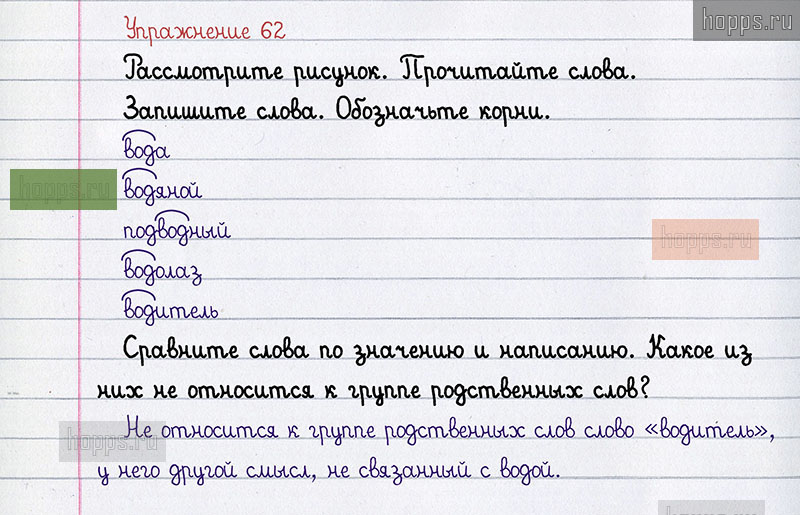 hopps.ru
Упражнение 62
Рассмотрите рисунок. Прочитайте слова.
Запишите слова. Обозначьте корни.
вода
водяной
hopps.ru
подводный
hopps.ru
водолаз
водитель
Сравните слова по значению и написанию. Какое из
них не относится к группе родственных слов?
Не относится к группе родственных слов слово «водитель»,
hopps.ru
у него другой смысл, не связанный с водой.
hopps.ru